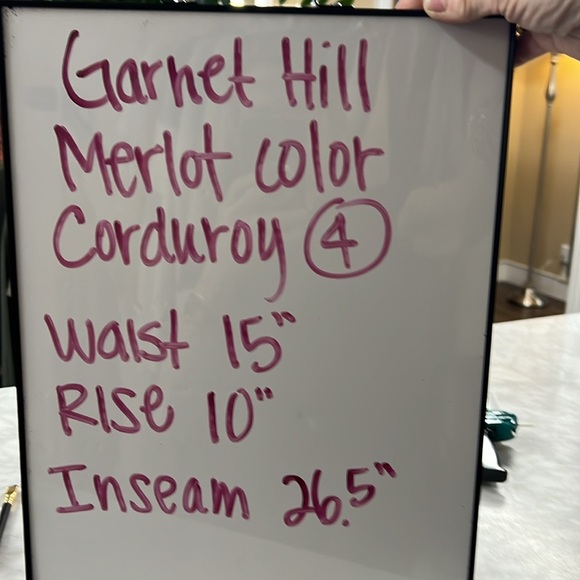 Garnet Hill
Merlot color
Corduroy 4
Waist 15"
Rise 10"
Inseam 26.5"